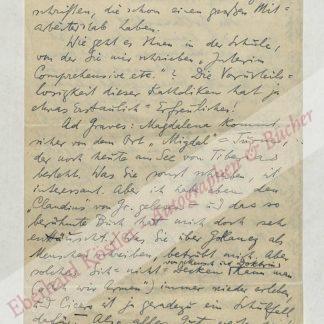 schriften, die schon einen großen Mit-
arbeiterstab haben.
Wie geht es Ihnen in der Schule,
von der Sie mir schrieben „Interim
Comprehensive etc."? Die Vorurteils-
losigkeit dieser Katholiken hat ja
etwas Erstaunlich-Erfreuliches!
Ad Graves: Magdalena kommt
sicher von dem Ort „Migdal" =
der noch heute am See von Tiberias
besteht. Was Sie sonst schreiben, ist
interessant. Aber ich habe eben den
Claudius von Gr. gelesen und das so
berühmte Buch hat mich doch sehr
enttäuscht. Was Sie über als
Menschen schreiben, betrübt mich. Aber
solches Sich-nicht-Decken kann man
immer wieder erleben,
und Cicero ist ja geradezu ein Schulfall
dafür. Also alles Gute
Eberhard Köstler Autographen & Bücher